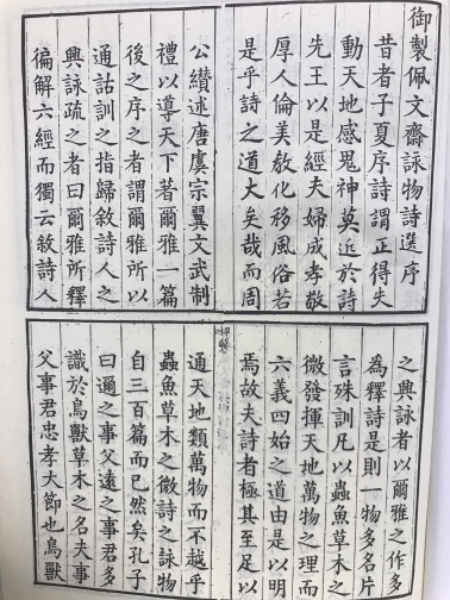 御製佩文齋詠物詩選序
昔者子夏序詩謂正得失
動天地感鬼神莫近於詩
先王以是經夫婦成孝敬
厚人倫美教化移風俗若
是乎詩之道大矣哉而周
公纘述唐虞宗翼文武制
禮以導天下著爾雅一篇
後之序之者謂爾雅所以
通詁訓之指歸敘詩人之
興詠疏之者曰爾雅所釋
徧解六經而獨云敘詩人
之興詠者以爾雅之作多
為釋詩是則一物多名片
言殊訓凡以蟲魚草木之
微發揮天地萬物之理而
六義四始之道由是以明
焉故夫詩者極其至足以
御製
通天地類萬物而不越乎
蟲魚草木之微詩之詠物
自三百篇而已然矣孔子
曰邇之事父遠之事君多
識於鳥獸草木之名夫事
父事君忠孝大節也鳥獸